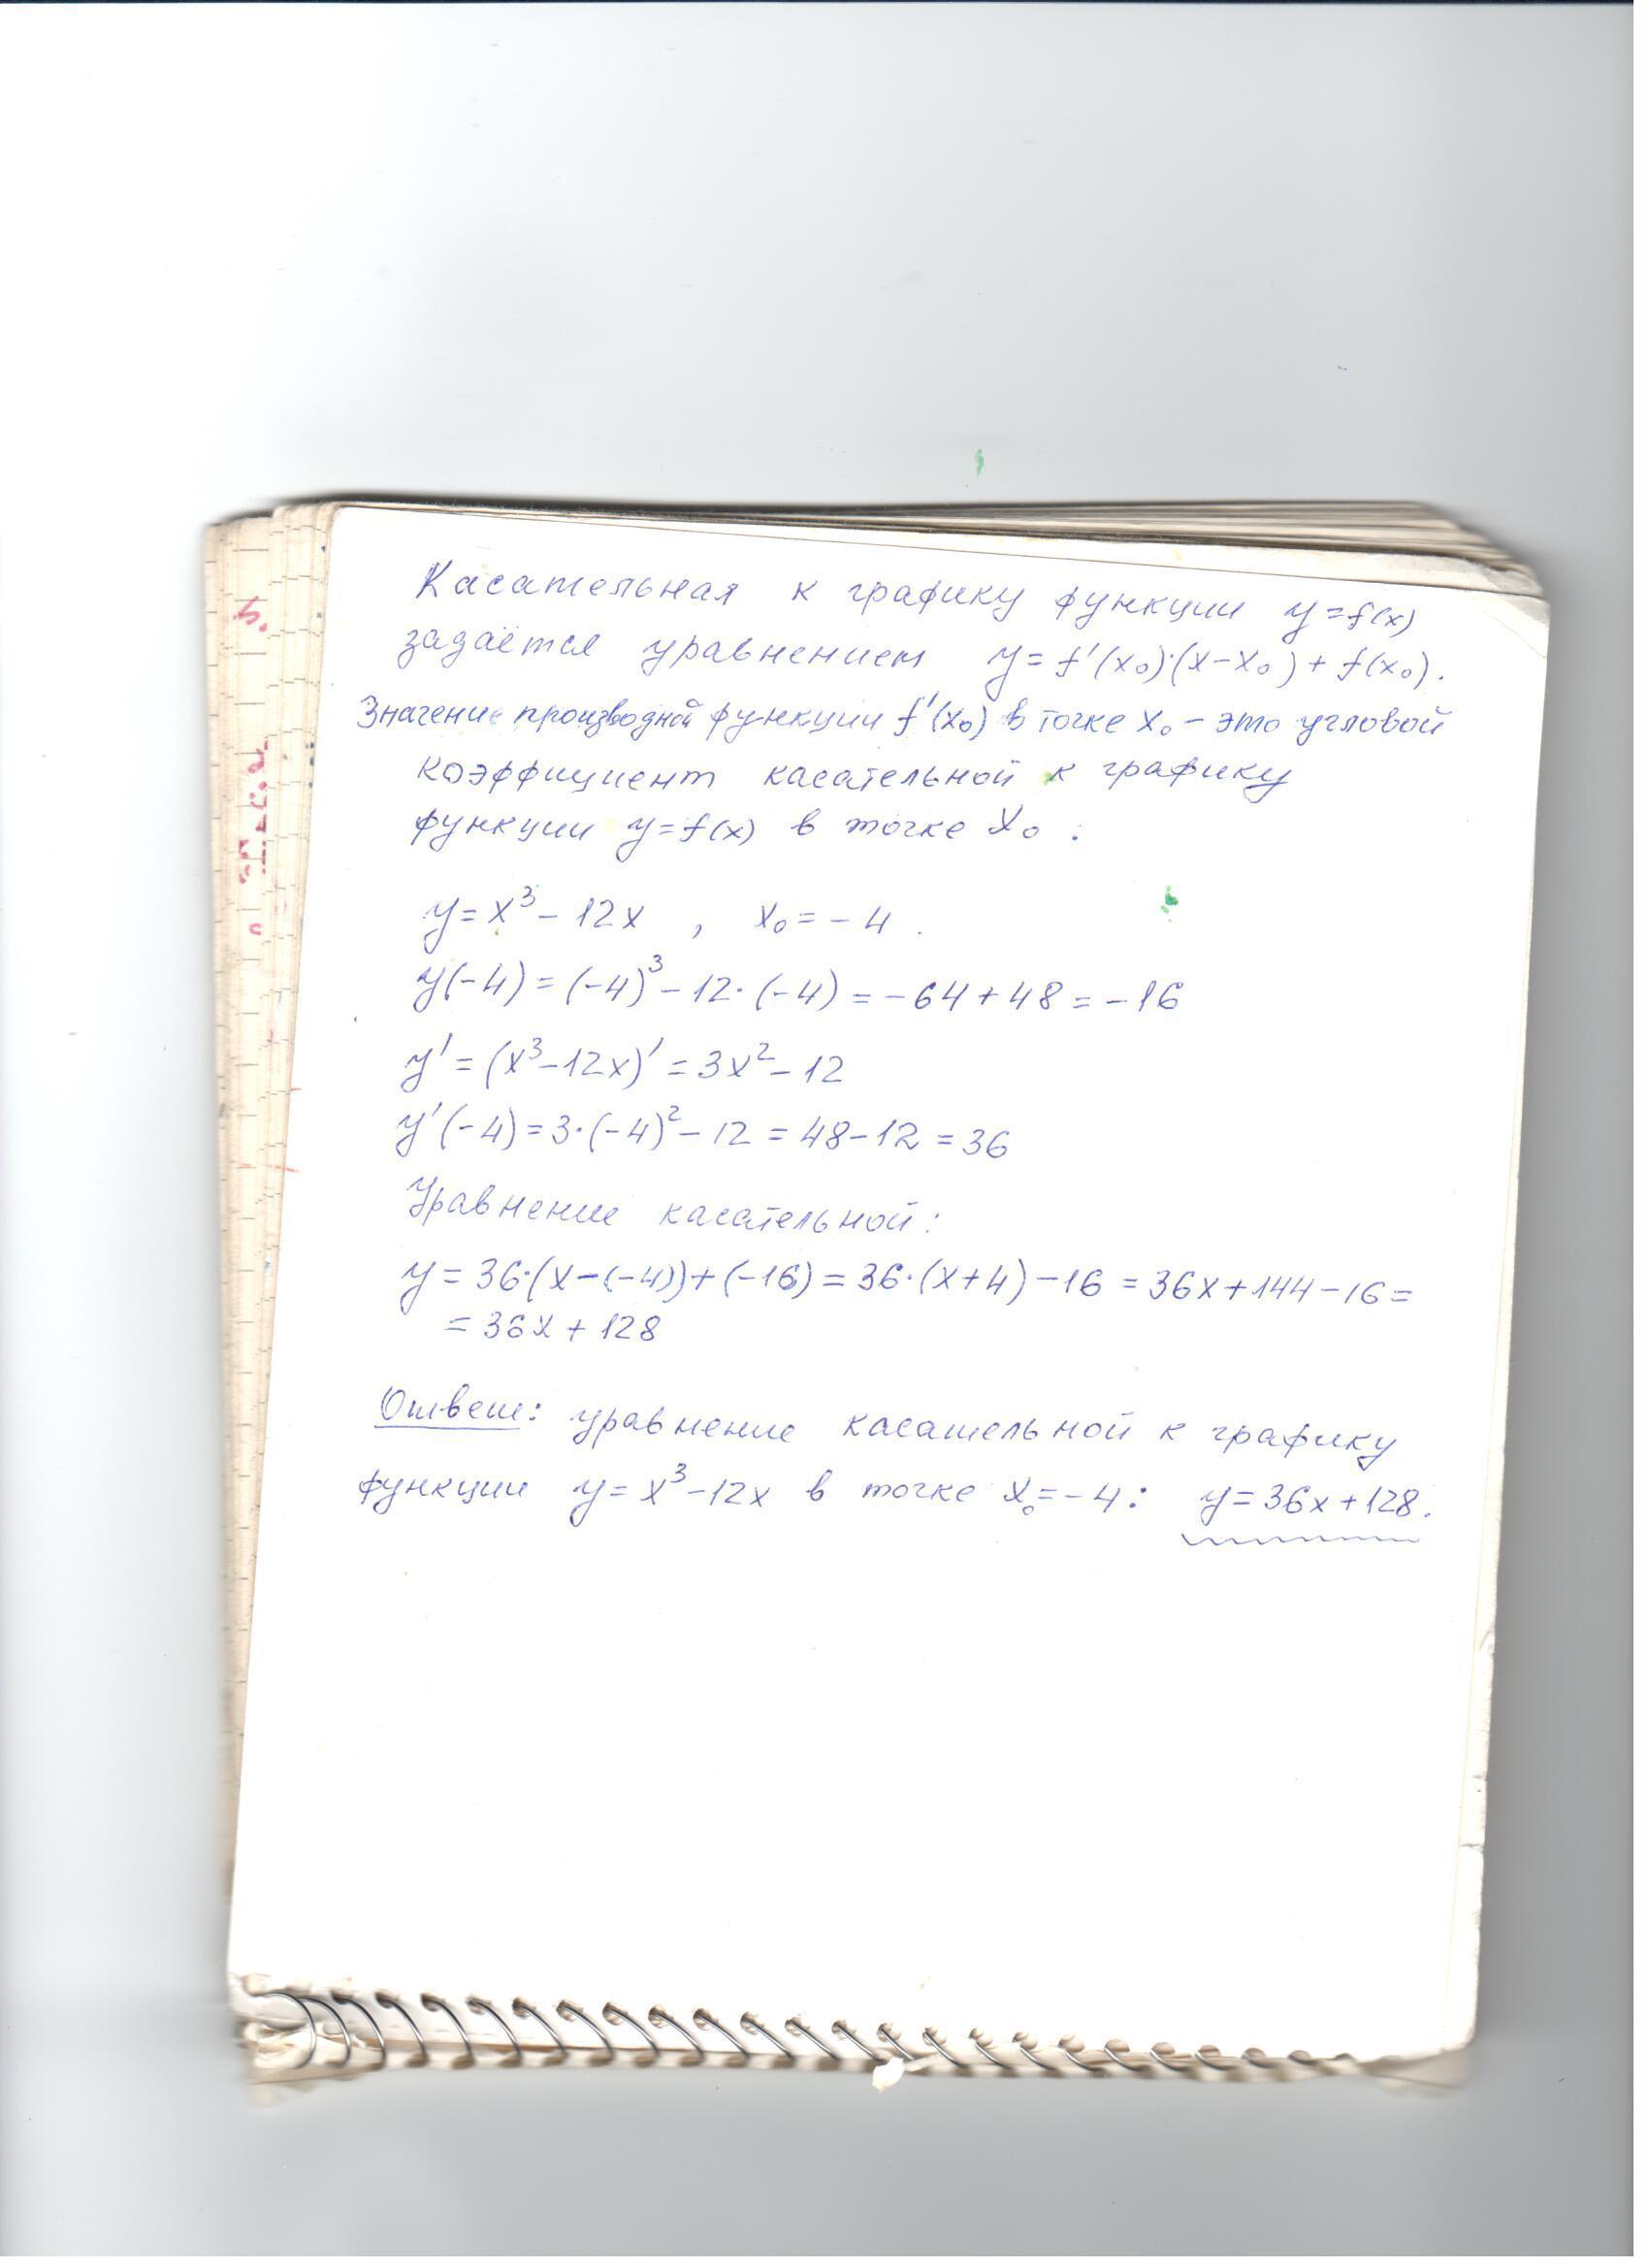 Касательная к графику функции y=f(x)
задаётся уравнением y=f'(x₀)·(x-x₀)+f(x₀).
Значение производной функции f'(x₀) в точке x₀ - это угловой
коэффициент касательной к графику
функции y=f(x) в точке x₀.
y=x³-12x, x₀=-4.
y(-4)=(-4)³-12·(-4)=-64+48=-16
y'=(x³-12x)'=3x²-12
y'(-4)=3·(-4)²-12=48-12=36
Уравнение касательной:
y=36·(x-(-4))+(-16)=36·(x+4)-16=36x+144-16=
=36x+128
Ответ: уравнение касательной к графику
функции y=x³-12x в точке x₀=-4: y=36x+128.